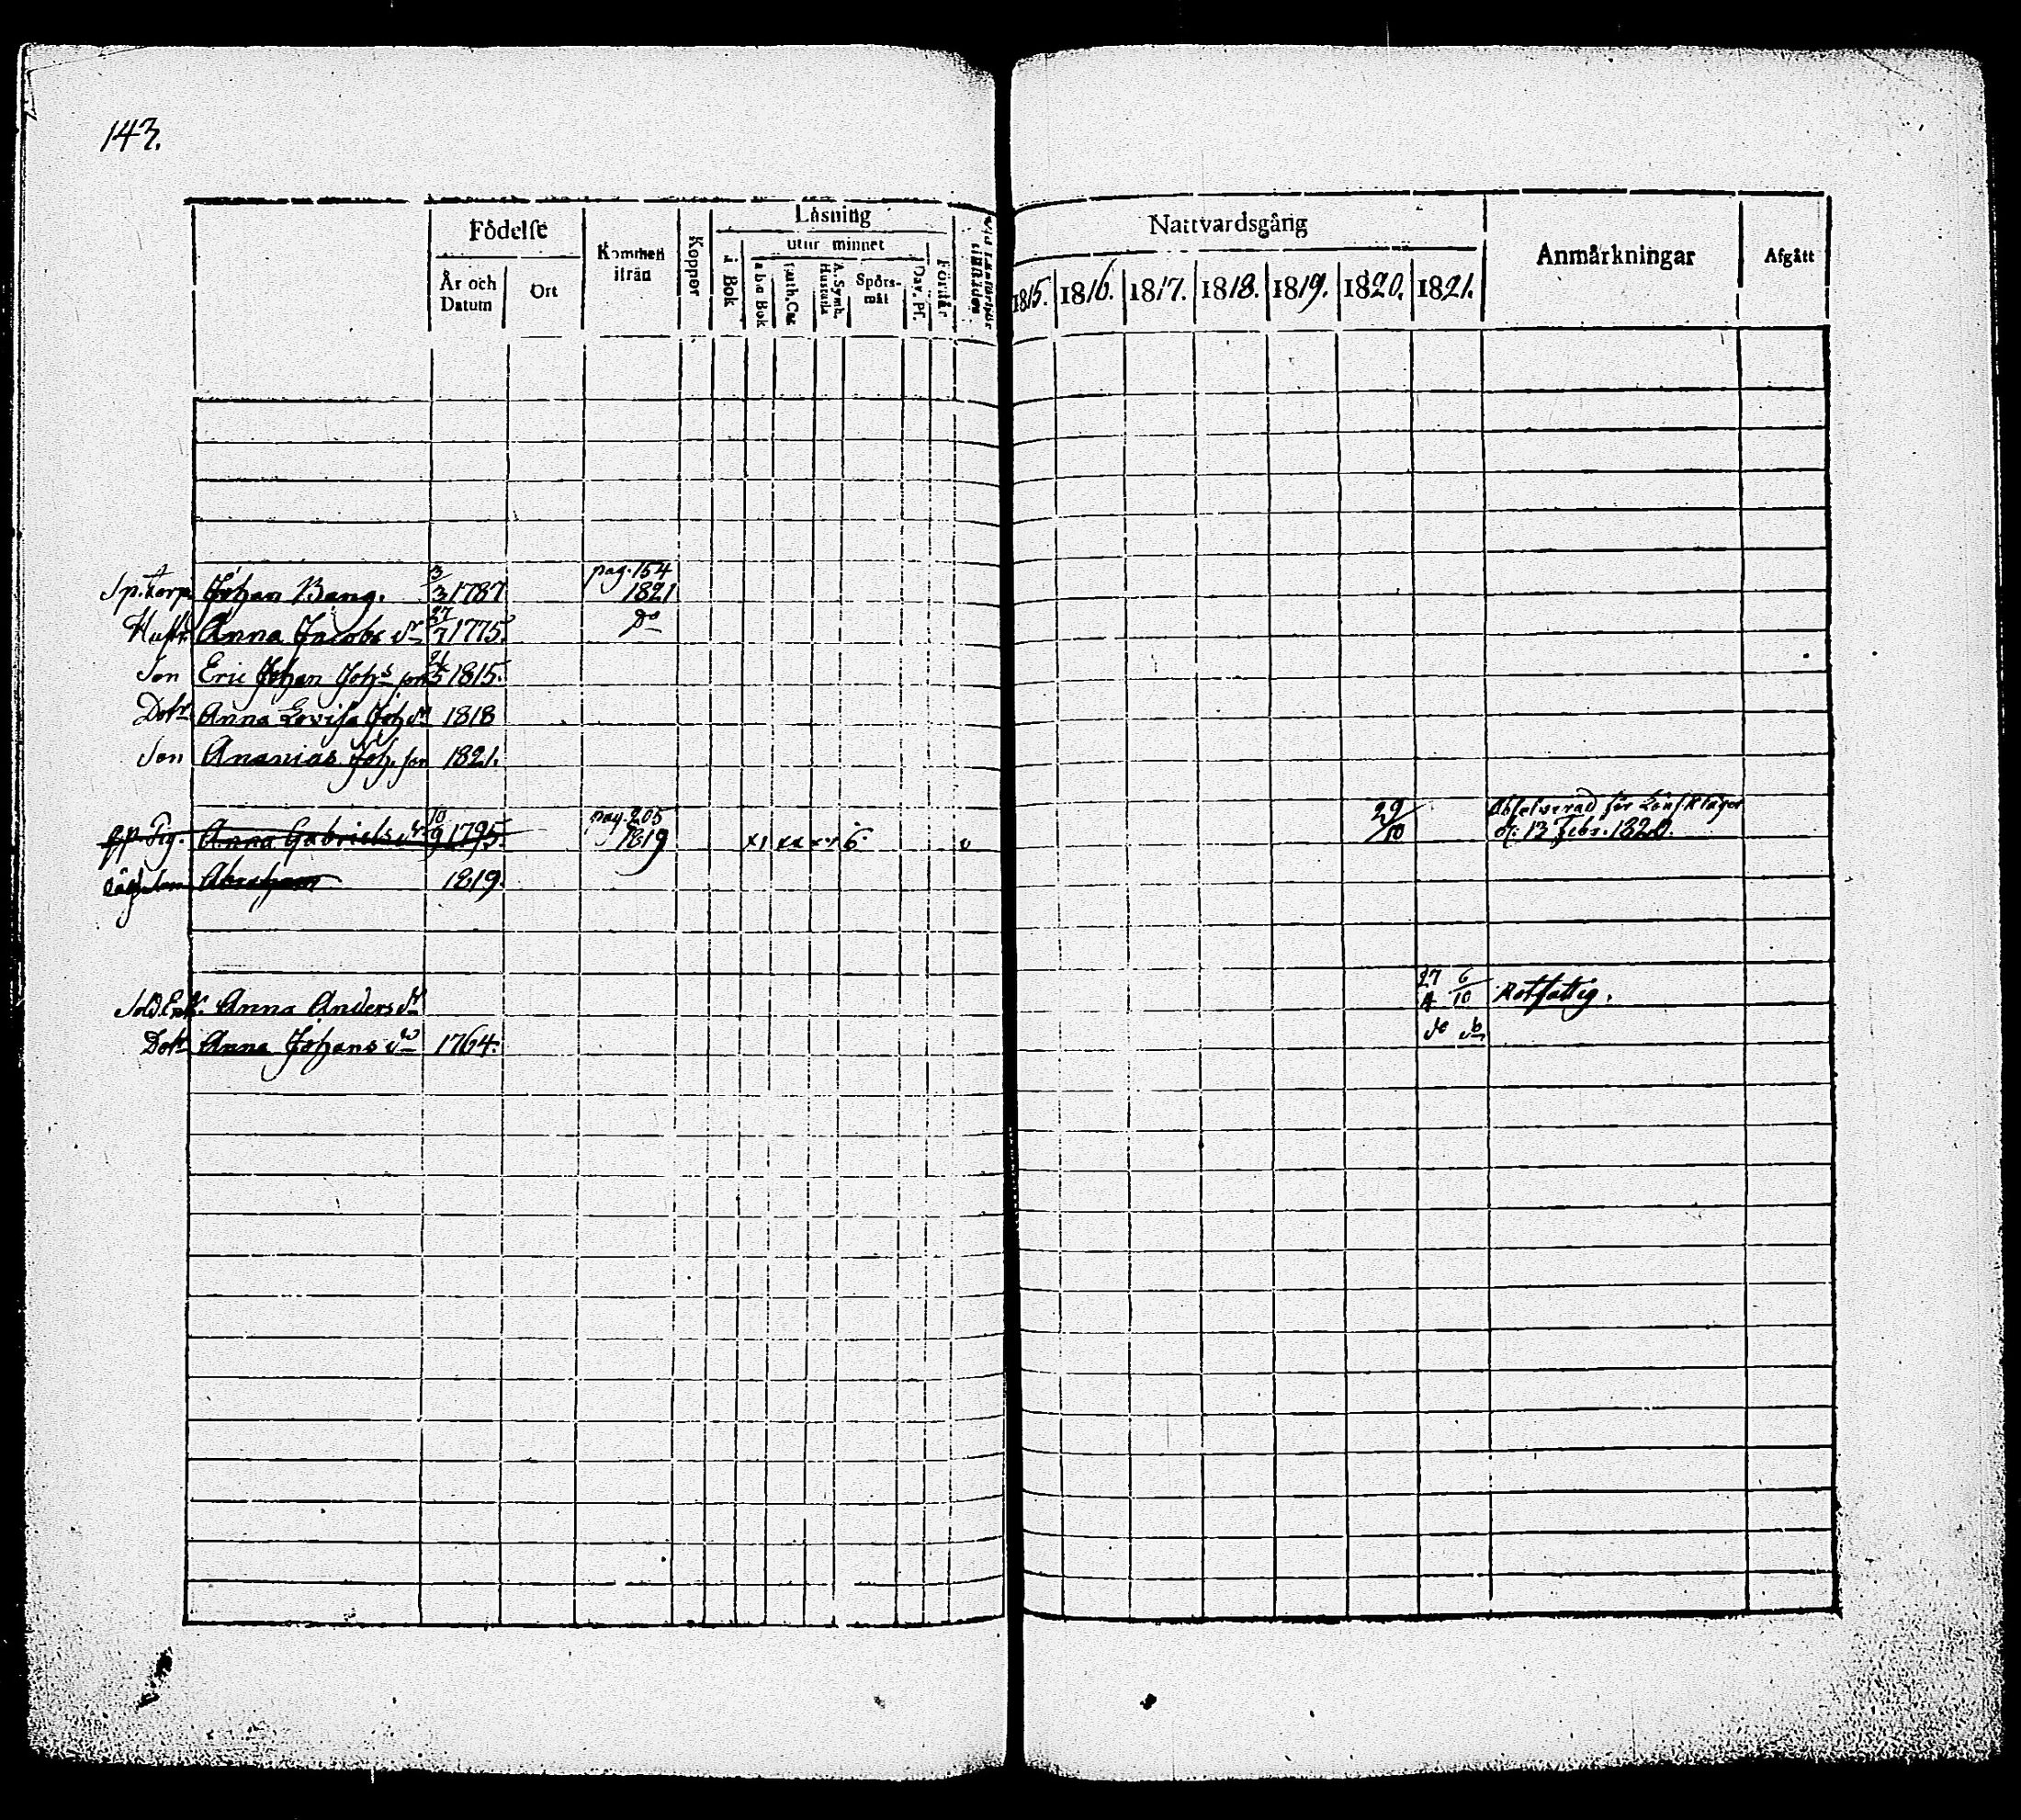 143.
Födelse
År och Datum
Ort
Kommen ifrån
Koppor
Läsning
i Bok
utur minnet
a b c Bok
Luth. Cat
A. Symb. Hustafla
Spörs- mål
Dav. Ps.
Förstår
Nattvardsgång
1815. 1816. 1817. 1818. 1819. 1820. 1821.
Anmärkningar
Afgått
Sp. torp. Johan Bang. 3/3 1787 pag. 154 1821
Hustr. Anna Jacobs dr 27/7 1775. do
Son Eric Johan Johs son 1815.
Dotr Anna Lovisa Joh dr 1818
Son Ananias Joh. son 1821.
Pig. Anna Gabriels dr 10/9 1795. pag. 205 1819 6. 29/10 Absolverad för Lönskläger
d. 13 Febr. 1820.
Abraham 1819.
Sold. Enk. Anna Anders dr 27/4 6/10 Rotfattig.
Dotr Anna Johans dr 1764. do do